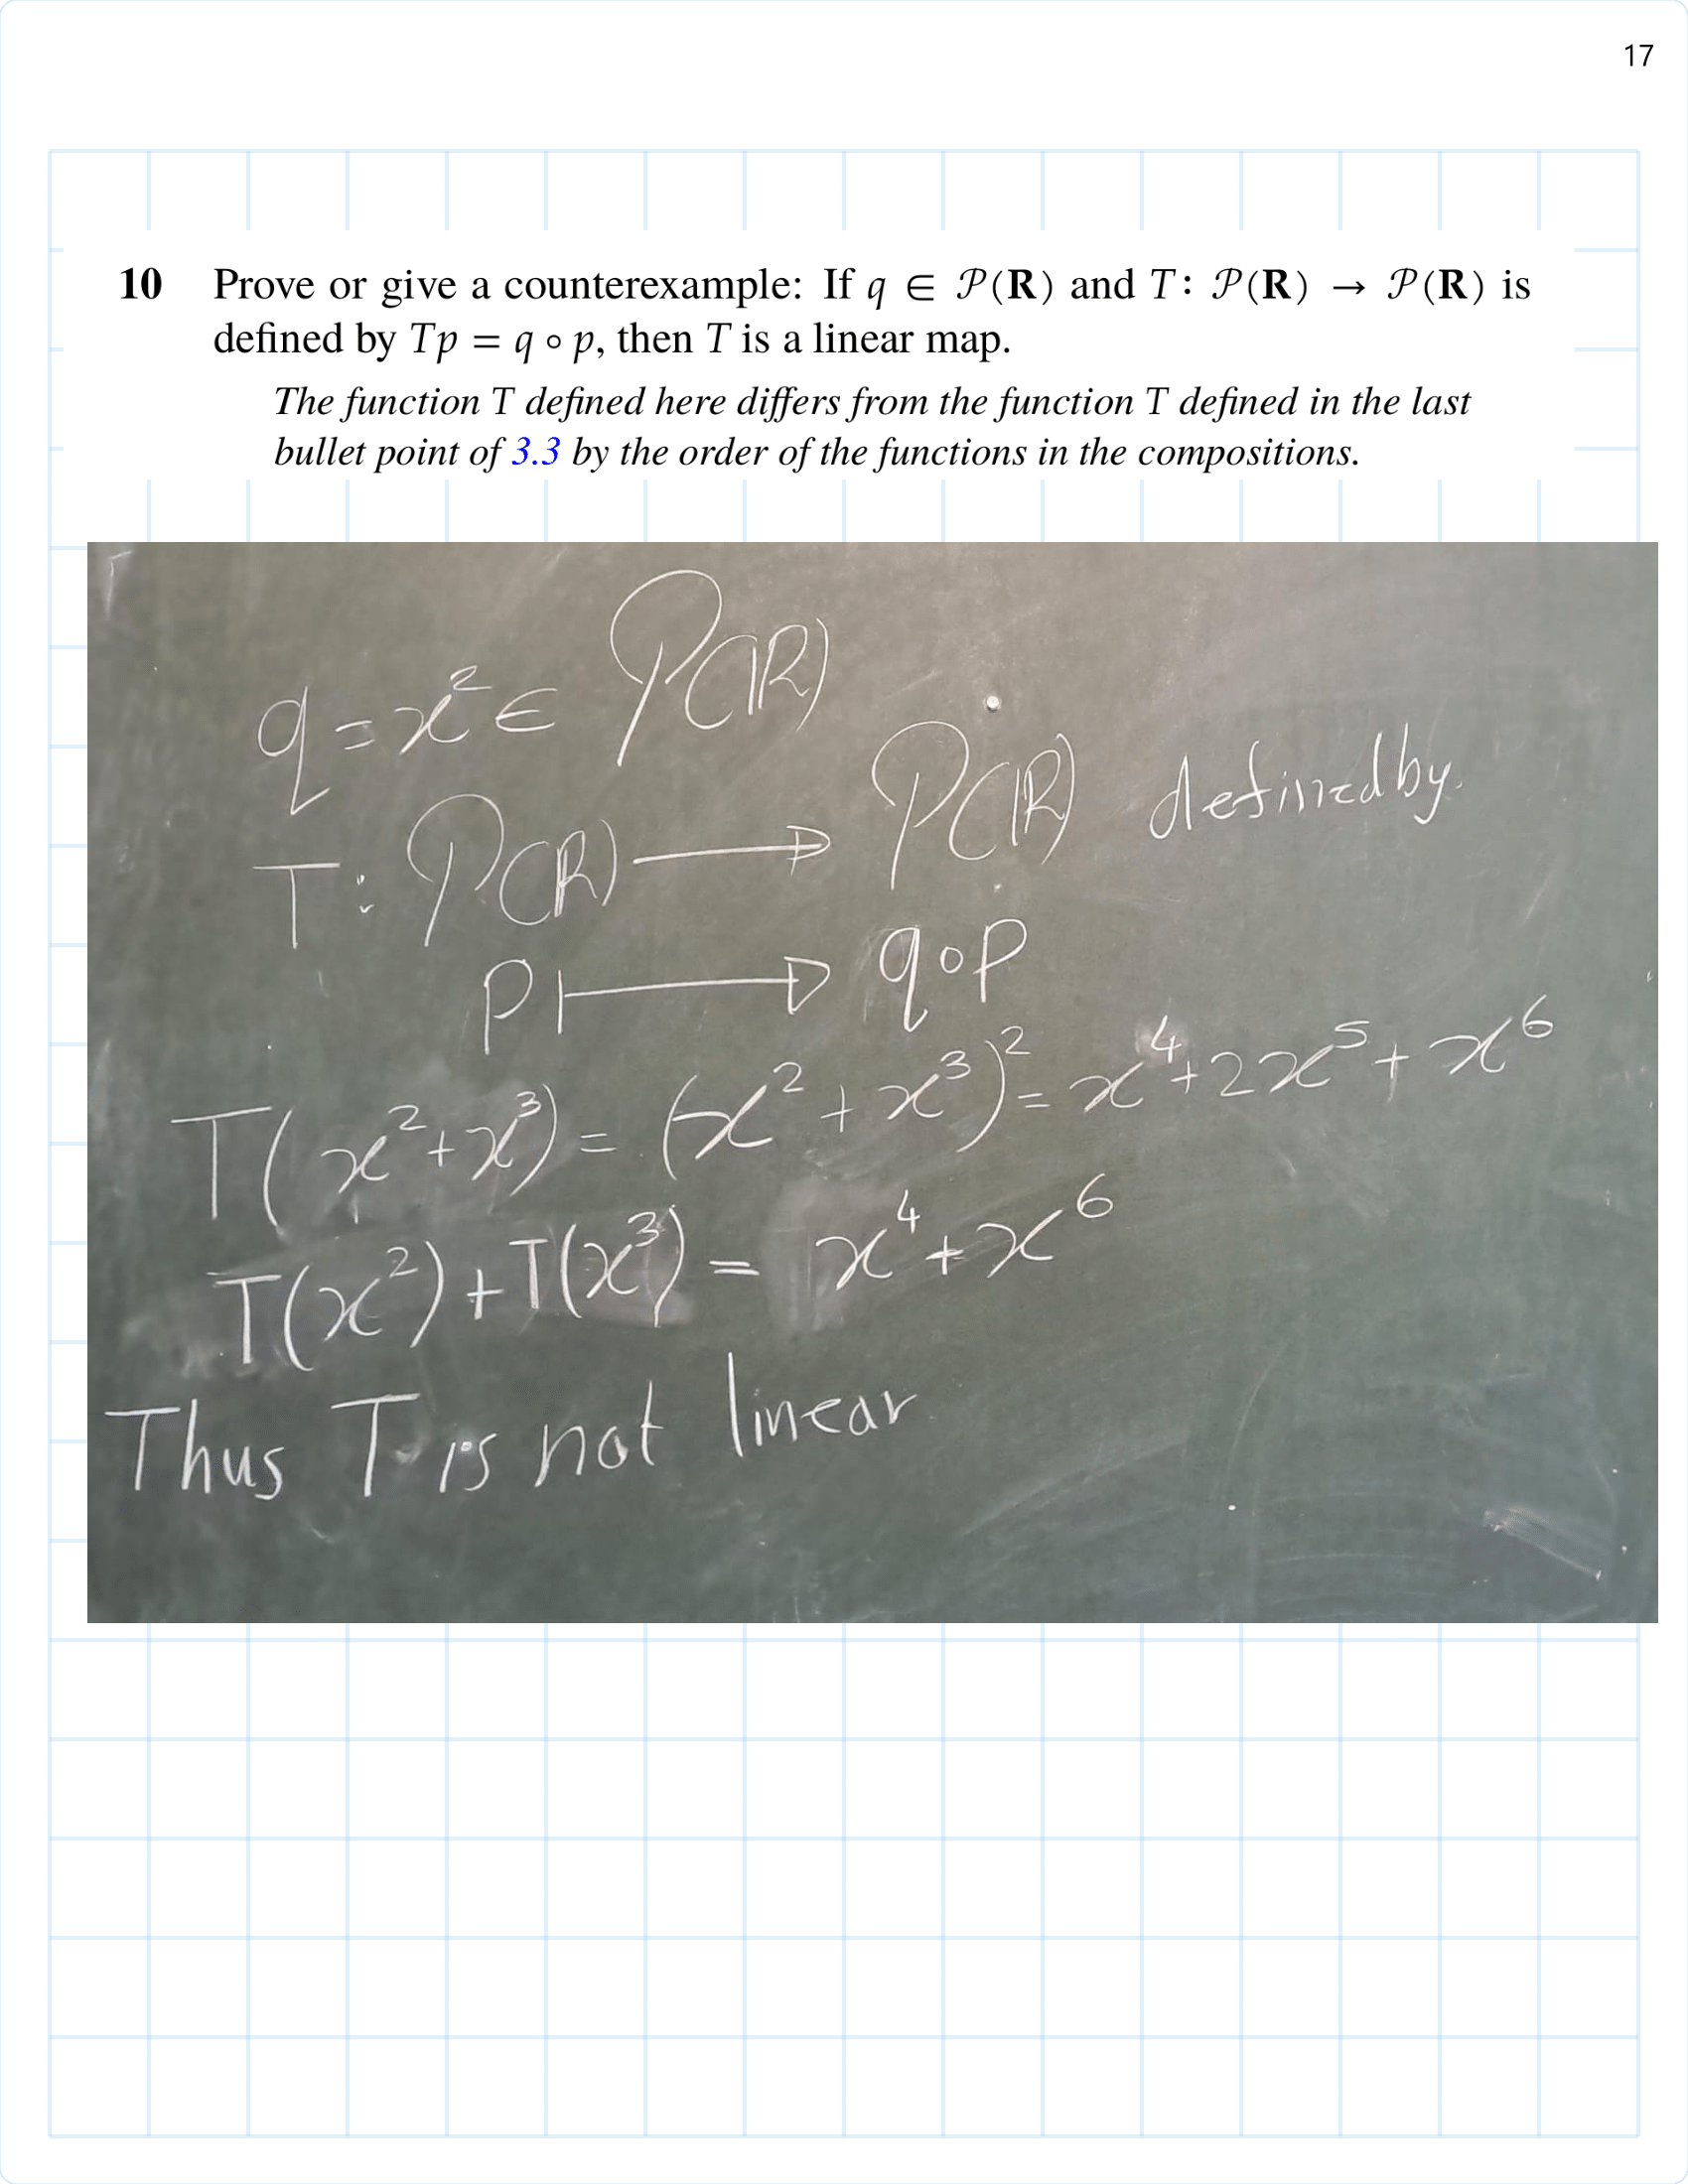 17
10 Prove or give a counterexample: If q ∈ 𝒫(𝐑) and T: 𝒫(𝐑) → 𝒫(𝐑) is
defined by Tp = q ∘ p, then T is a linear map.
The function T defined here differs from the function T defined in the last
bullet point of 3.3 by the order of the functions in the compositions.
q = x² ∈ 𝒫(ℝ)
T : 𝒫(ℝ) → 𝒫(ℝ) defined by.
p ↦ q∘p
T(x²+x³) = (x² + x³)² = x⁴+2x⁵+x⁶
T(x²)+T(x³) = x⁴+x⁶
Thus T is not linear